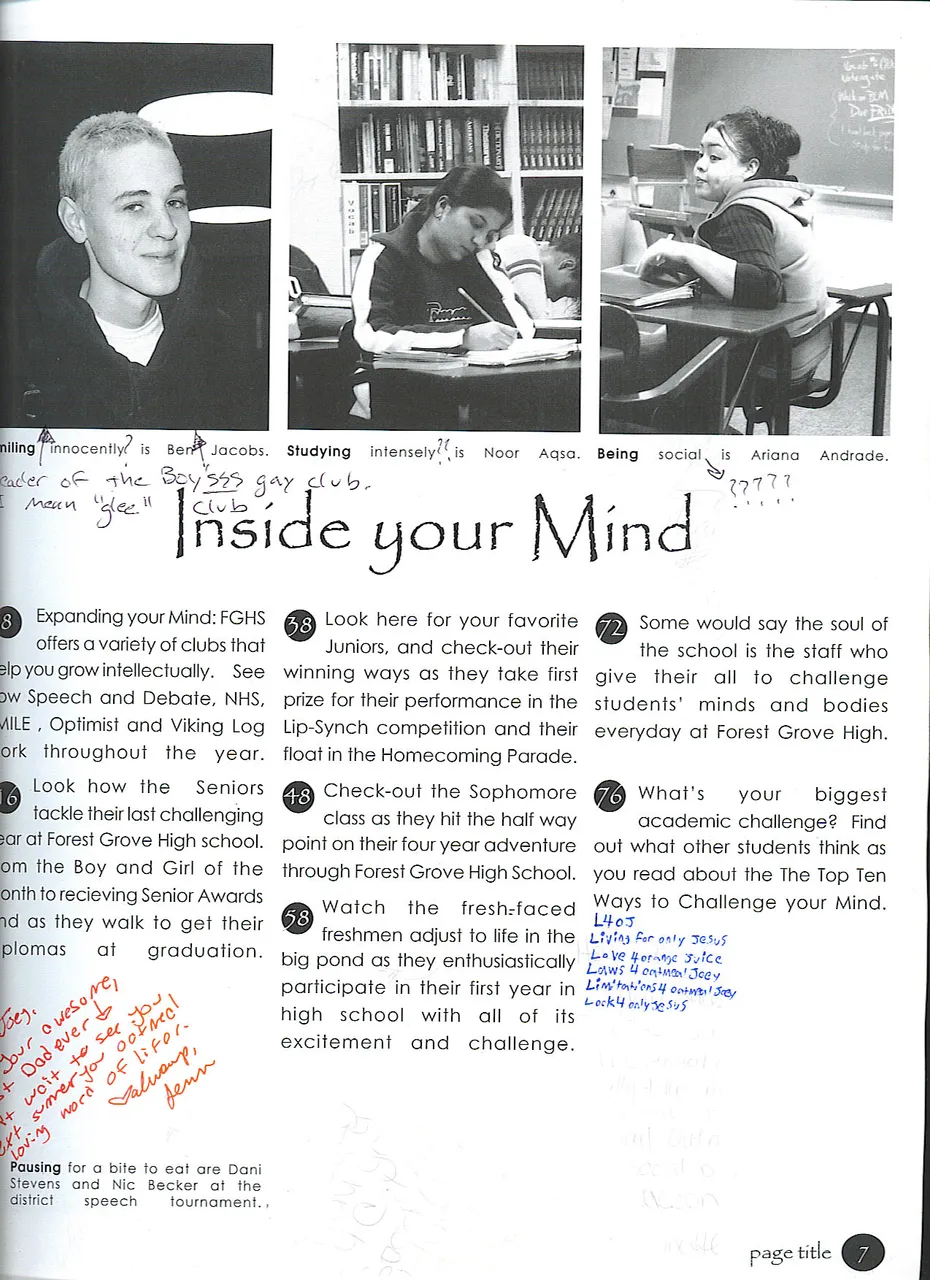 miling innocently is Ben Jacobs.
?
eader of the Boy"sss gay club.
I mean "glee" club
Studying intensely is Noor Aqsa.
??
Being social is Ariana Andrade.
?????
Inside your Mind
8 Expanding your Mind: FGHS
offers a variety of clubs that
elp you grow intellectually. See
ow Speech and Debate, NHS,
MILE , Optimist and Viking Log
ork throughout the year.
16 Look how the Seniors
tackle their last challenging
ear at Forest Grove High school.
om the Boy and Girl of the
onth to recieving Senior Awards
nd as they walk to get their
plomas at graduation.
Joey,
your awesome,
st Dad ever
t wait to see you
ext summer you
loving word of life
Jenn
Pausing for a bite to eat are Dani
Stevens and Nic Becker at the
district speech tournament.
38 Look here for your favorite
Juniors, and check-out their
winning ways as they take first
prize for their performance in the
Lip-Synch competition and their
float in the Homecoming Parade.
48 Check-out the Sophomore
class as they hit the half way
point on their four year adventure
through Forest Grove High School.
58 Watch the fresh-faced
freshmen adjust to life in the
big pond as they enthusiastically
participate in their first year in
high school with all of its
excitement and challenge.
72 Some would say the soul of
the school is the staff who
give their all to challenge
students' minds and bodies
everyday at Forest Grove High.
76 What's your biggest
academic challenge? Find
out what other students think as
you read about the The Top Ten
Ways to Challenge your Mind.
L4oJ
Living for only Jesus
Love 4 orange Juice
Laws 4 oatmeal Joey
Limitations 4 oatmeal Joey
Look 4 only Jesus
page title 7
Vocab